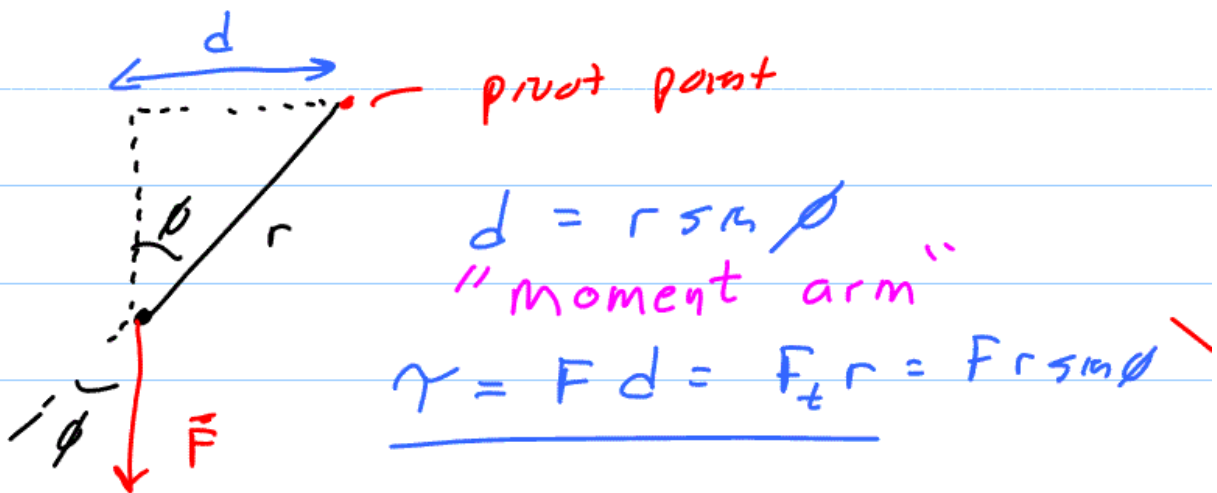 d
pivot point
φ
r
d = r sin φ
"moment arm"
τ = F d = F_t r = F r sin φ
φ
F⃗